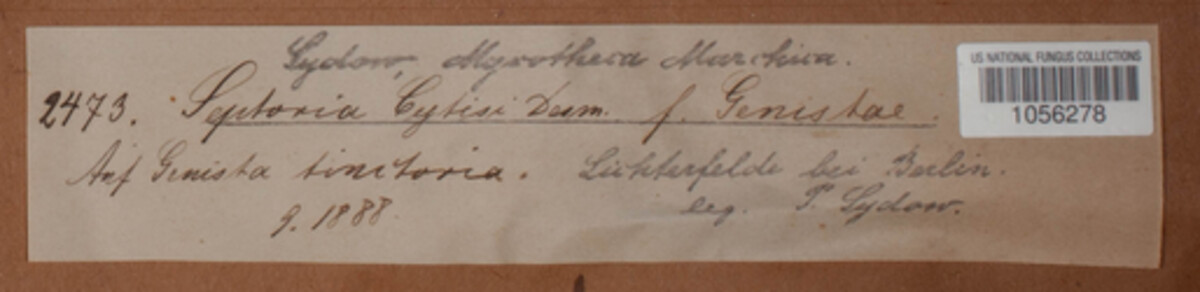 Sydow, Mycotheca Marchica.
US NATIONAL FUNGUS COLLECTIONS
1056278
2473. Septoria Cytisi Desm. f. Genistae.
Auf Genista tinctoria. Lichterfelde bei Berlin.
9. 1888. leg. P. Sydow.